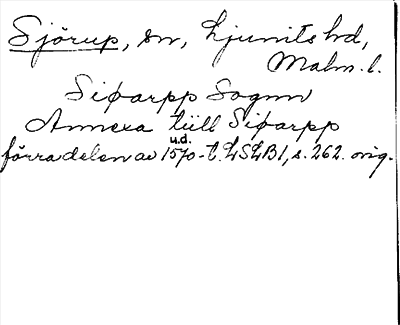 Sjörup, sn, Ljunits hd,
Malm. l.
Siøarpp Sognn
Annexa tiill Siøarpp
u.d.
förra delen av 1570-t. LSLB1, s. 262. orig.